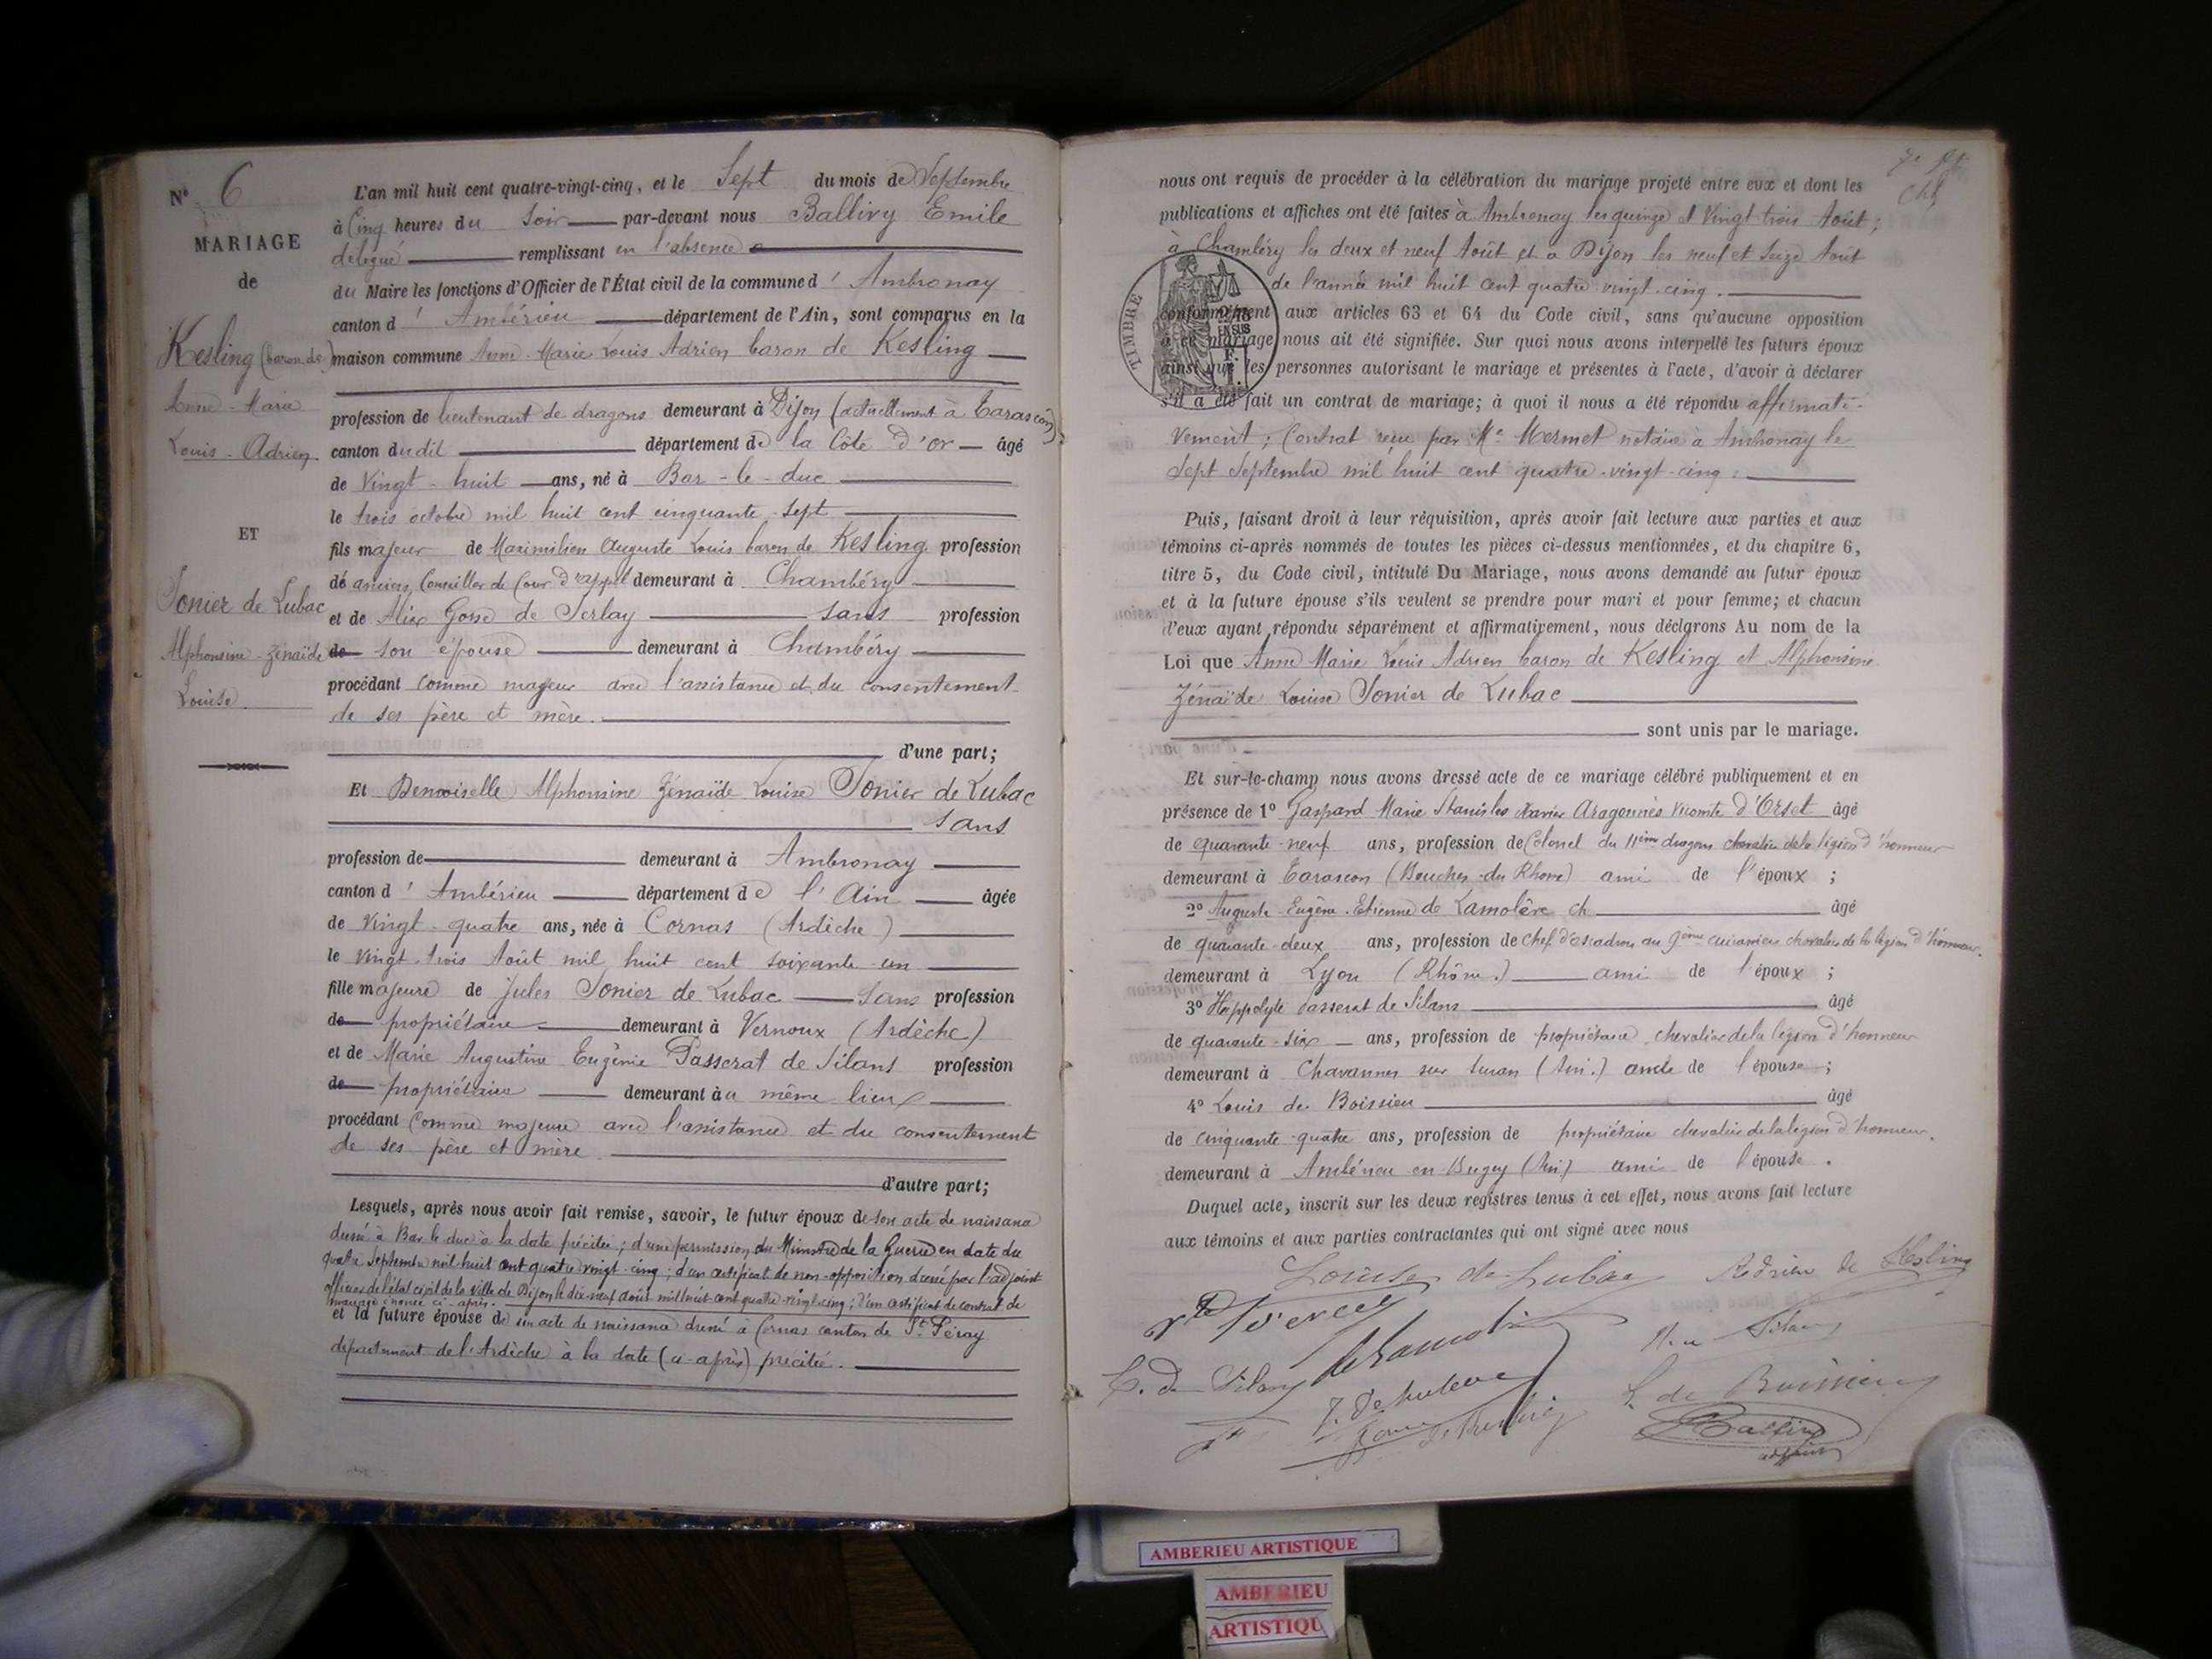 N° 6
MARIAGE
de
Kesling (baron de)
Anne-Marie
Louis-Adrien
ET
Sonier de Lubac
Alphonsine-Zénaïde
Louise.
L'an mil huit cent quatre-vingt-cinq, et le Sept du mois de Septembre
à Cinq heures du Soir par-devant nous Ballivy Emile
délégué remplissant en l'absence
du Maire les fonctions d'Officier de l'État civil de la commune d'Ambronay
canton d'Ambérieu département de l'Ain, sont comparus en la
maison commune Anne-Marie Louis Adrien baron de Kesling
profession de lieutenant de dragons demeurant à Dijon (actuellement à Tarascon)
canton dudit département de la Côte d'or âgé
de Vingt-huit ans, né à Bar-le-duc
le trois octobre mil huit cent cinquante-sept
fils majeur de Maximilien Auguste Louis baron de Kesling profession
de ancien Conseiller de Cour d'appel demeurant à Chambéry
et de Alix Gosse de Serlay sans profession
de son épouse demeurant à Chambéry
procédant comme majeur avec l'assistance et du consentement
de ses père et mère.
d'une part;
Et Demoiselle Alphonsine Zénaïde Louise Sonier de Lubac
sans
profession de demeurant à Ambronay
canton d'Ambérieu département de l'Ain âgée
de vingt-quatre ans, née à Cornas (Ardèche)
le vingt-trois Août mil huit cent soixante-un
fille majeure de Jules Sonier de Lubac Sans profession
de propriétaire demeurant à Vernoux (Ardèche)
et de Marie Augustine Eugénie Passerat de Silans profession
de propriétaire demeurant à même lieu
procédant Comme majeure avec l'assistance et du consentement
de ses père et mère.
d'autre part;
Lesquels, après nous avoir fait remise, savoir, le futur époux de son acte de naissance
dressé à Bar le duc à la date précitée; d'une permission du Ministre de la Guerre en date du
quatre Septembre mil huit cent quatre vingt-cinq; d'un certificat de non-opposition dressé par l'adjoint
officier de l'état civil de la ville de Dijon le dix-neuf août mil huit cent quatre-vingt-cinq; d'un certificat de contrat de
mariage énoncé ci-après.
et la future épouse de son acte de naissance dressé à Cornas canton de St Péray
département de l'Ardèche à la date (ci-après) précitée.
nous ont requis de procéder à la célébration du mariage projeté entre eux et dont les
publications et affiches ont été faites à Ambronay les quinze et Vingt trois Août;
à Chambéry les deux et neuf Août et à Dijon les neuf et Seize Août
de l'année mil huit cent quatre-vingt-cinq.
TIMBRE
EN SUS
conformément aux articles 63 et 64 du Code civil, sans qu'aucune opposition
à ce mariage nous ait été signifiée. Sur quoi nous avons interpellé les futurs époux
ainsi que les personnes autorisant le mariage et présentes à l'acte, d'avoir à déclarer
s'il a été fait un contrat de mariage; à quoi il nous a été répondu affirmati-
vement; Contrat reçu par Me Mermet notaire à Ambronay le
Sept Septembre mil huit cent quatre-vingt-cinq;
Puis, faisant droit à leur réquisition, après avoir fait lecture aux parties et aux
témoins ci-après nommés de toutes les pièces ci-dessus mentionnées, et du chapitre 6,
titre 5, du Code civil, intitulé Du Mariage, nous avons demandé au futur époux
et à la future épouse s'ils veulent se prendre pour mari et pour femme; et chacun
d'eux ayant répondu séparément et affirmativement, nous déclarons Au nom de la
Loi que Anne Marie Louis Adrien baron de Kesling et Alphonsine
Zénaïde Louise Sonier de Lubac
sont unis par le mariage.
Et sur-le-champ nous avons dressé acte de ce mariage célébré publiquement et en
présence de 1° Gaspard Marie Stanislas Xavier Aragonnès Vicomte d'Orset âgé
de quarante-neuf ans, profession de Colonel du 11ème dragons chevalier de la légion d'honneur
demeurant à Tarascon (Bouches-du-Rhône) ami de l'époux;
2° Auguste-Eugène-Etienne de Lamolère âgé
de quarante-deux ans, profession de chef d'escadrons au 9ème cuirassiers chevalier de la légion d'honneur.
demeurant à Lyon (Rhône.) ami de l'époux;
3° Hyppolyte Passerat de Silans âgé
de quarante-six ans, profession de propriétaire, chevalier de la légion d'honneur
demeurant à Chavannes sur Suran (Ain.) oncle de l'épouse;
4° Louis de Boissieu âgé
de cinquante-quatre ans, profession de propriétaire chevalier de la légion d'honneur.
demeurant à Ambérieu en-Bugey (Ain) ami de l'épouse.
Duquel acte, inscrit sur les deux registres tenus à cet effet, nous avons fait lecture
aux témoins et aux parties contractantes qui ont signé avec nous
Louise de Lubac Adrien de Kesling
L. de Boissieu
Ballivy
adjoint
AMBERIEU ARTISTIQUE
AMBERIEU
ARTISTIQU